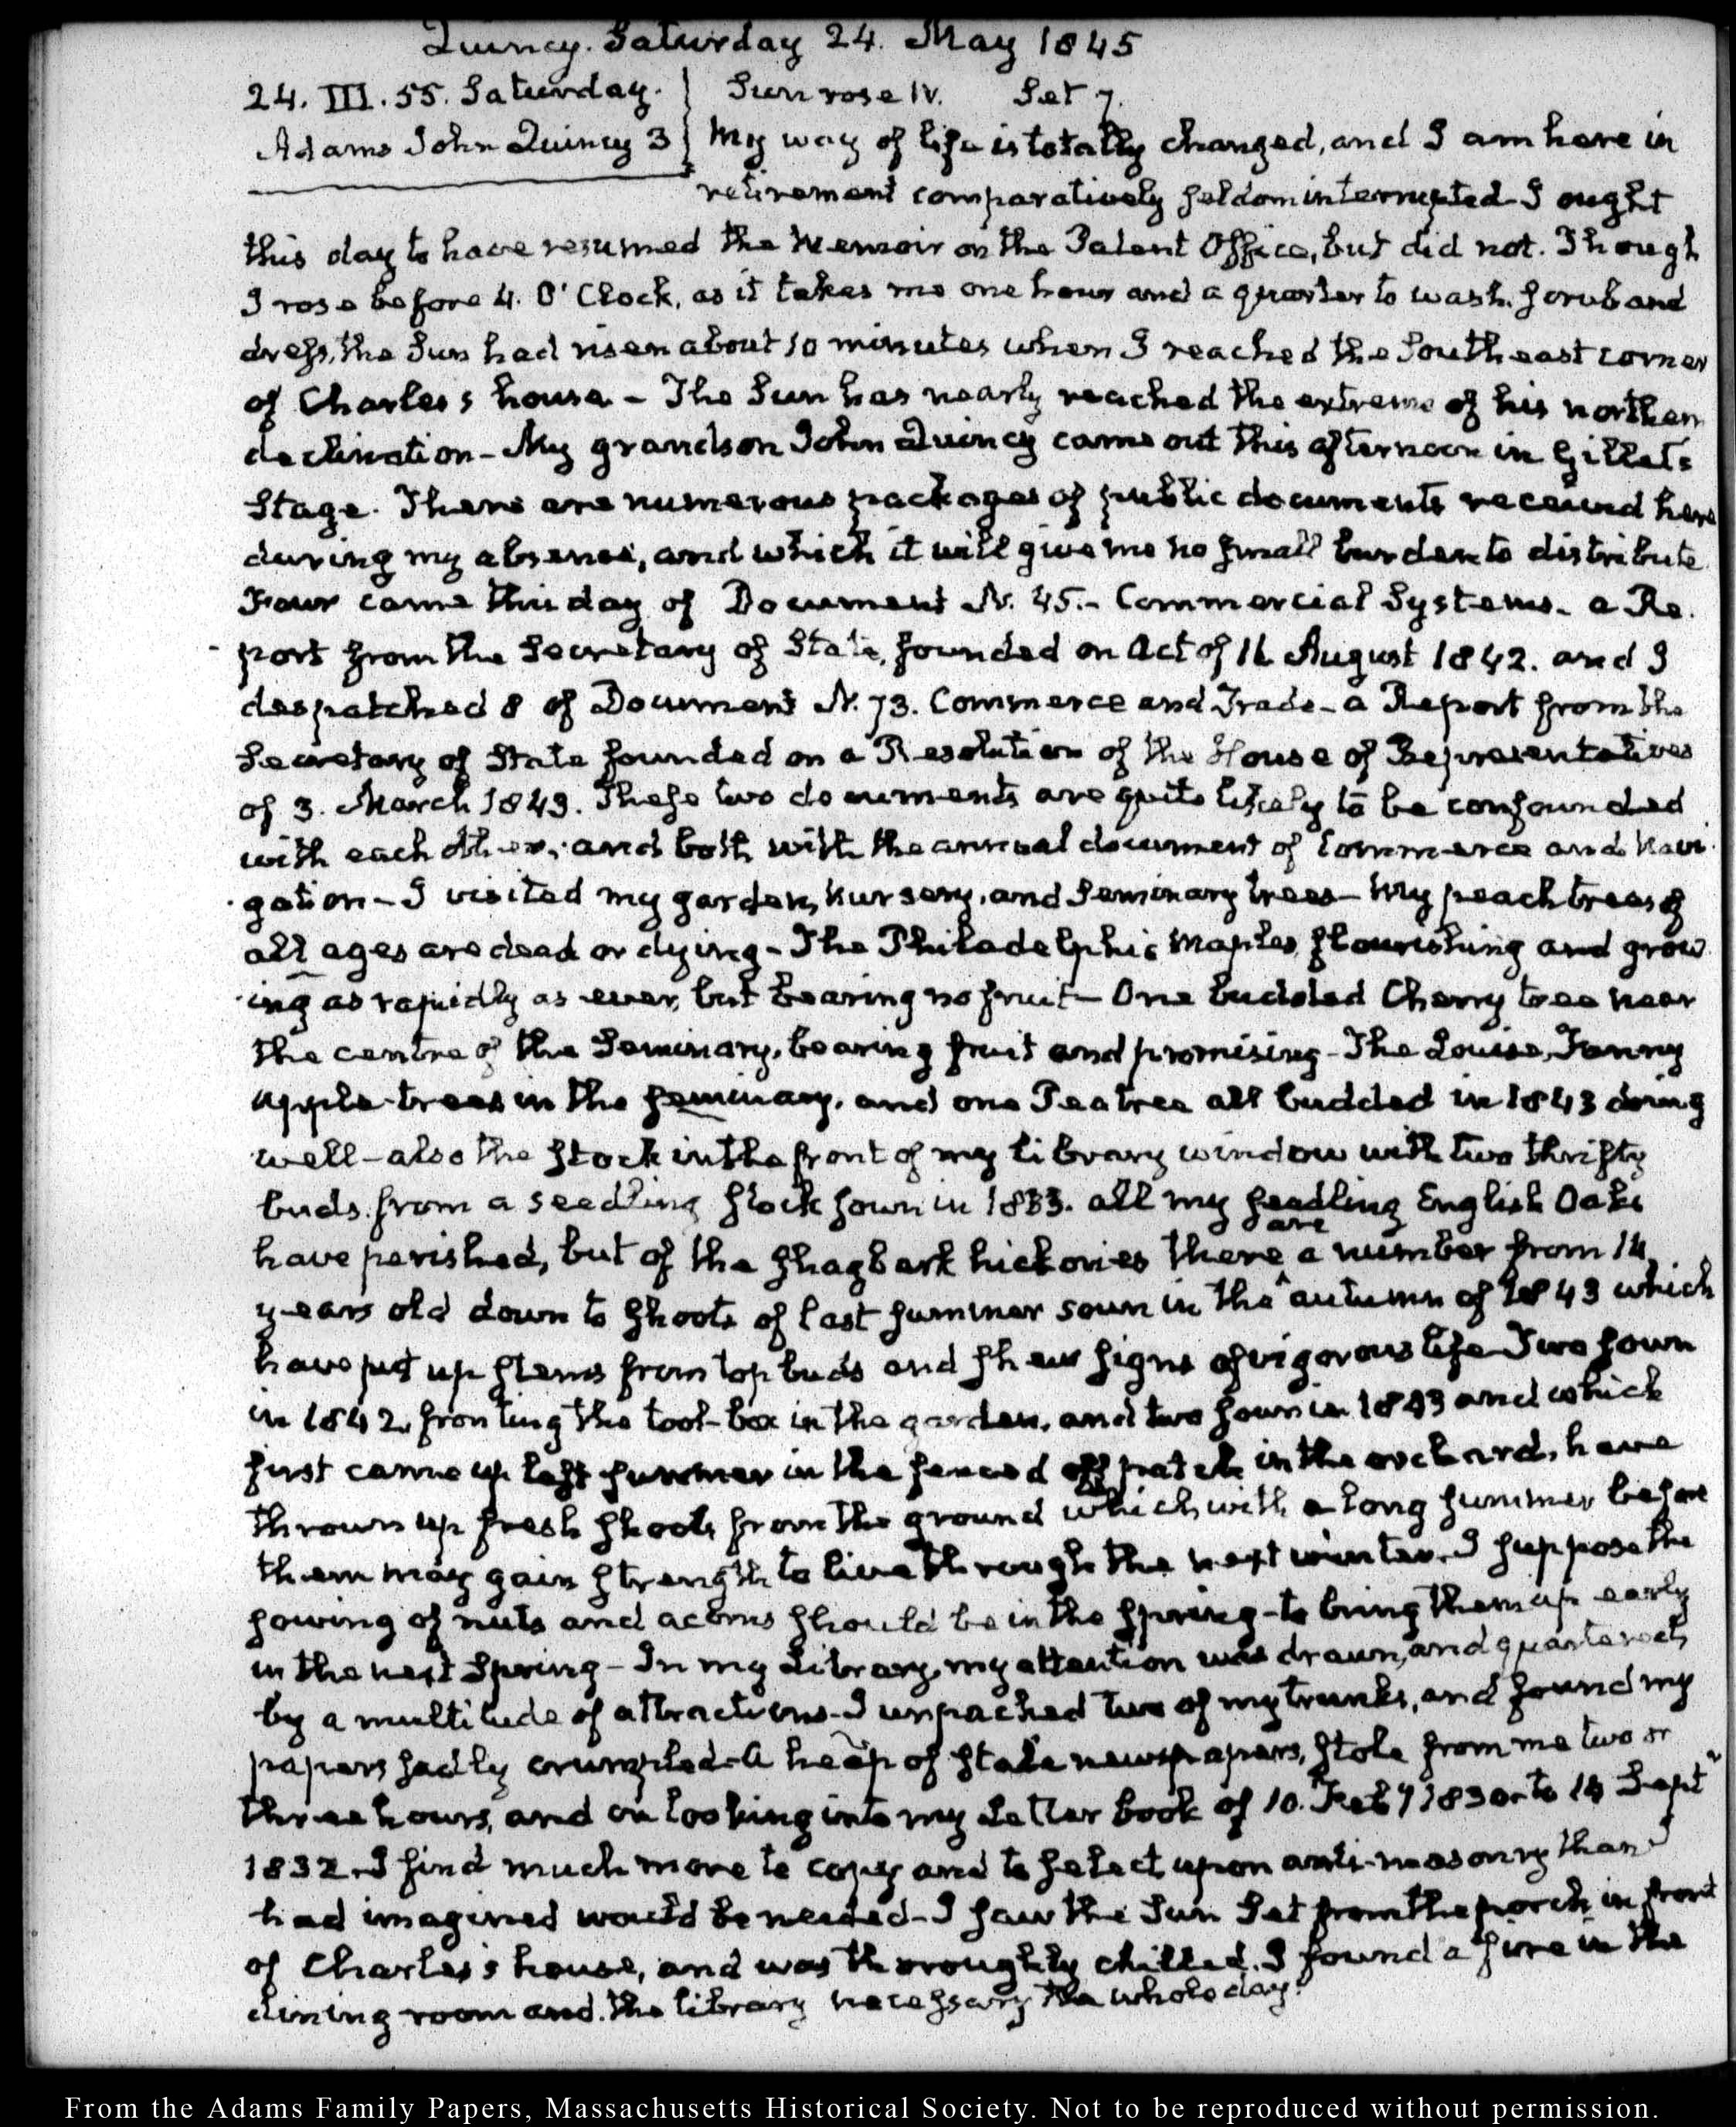 Quincy. Saturday 24. May 1845
24. III. 55. Saturday. } Sun rose IV. Set 7.
Adams John Quincy 3 } My way of life is totally changed, and I am here in
retirement comparatively seldom interrupted - I ought
this day to have resumed the Memoir on the Patent Office, but did not. Though
I rose before 4. O'Clock, as it takes me one hour and a quarter to wash. scrub and
dress, the Sun had risen about 10 minutes when I reached the South east corner
of Charles s house - The Sun has nearly reached the extreme of his northern
declination - My grandson John Quincy came out this afternoon in Gillet's
Stage. There are numerous packages of public documents received here
during my absence, and which it will give me no small burden to distribute
Four came this day of Document N. 45. - Commercial Systems - a Re-
port from the Secretary of State, founded on Act of 16 August 1842. and I
despatched 8 of Document N. 73. Commerce and Trade - a Report from the
Secretary of State founded on a Resolution of the House of Representatives
of 3. March 1843. These two documents are quite likely to be confounded
with each other, and both with the annual document of Commerce and Navi-
gation - I visited my garden, nursery, and Seminary trees - My peach trees of
all ages are dead or dying - The Philadelphia Maples flourishing and grow
ing as rapidly as ever, but bearing no fruit - One budded Cherry tree near
the centre of the Seminary, bearing fruit and promising - The Louisa, Fanny
apple-trees in the seminary, and one Peatree all budded in 1843 doing
well - also the stock in the front of my library window with two thrifty
buds. from a seedling stock sown in 1833. all my seedling English Oaks
have perished, but of the shagbark hickories there are a number from 14
years old down to shoots of last summer sown in the autumn of 1843 which
have put up stems from top buds and shew signs of vigorous life Two sown
in 1842. fronting the tool-box in the garden, and two sown in 1843 and which
first came up last summer in the fenced off patch in the orchard, have
thrown up fresh shoots from the ground which with a long summer before
them may gain strength to live through the next winter. I suppose the
sowing of nuts and acorns should be in the spring - to bring them up early
in the next Spring - In my Library, my attention was drawn, and quartered,
by a multitude of attractions - I unpacked two of my trunks, and found my
papers sadly crumpled - A heap of stale newspapers, stole from me two or
three hours, and on looking into my Letter book of 10. Feby 1830. to 14 Septr
1832. I find much more to copy and to select upon anti-masonry than I
had imagined would be needed - I saw the Sun Set from the porch in front
of Charles's house, and was thoroughly chilled. I found a fire in the
dining room and the library necessary the whole day.
From the Adams Family Papers, Massachusetts Historical Society. Not to be reproduced without permission.